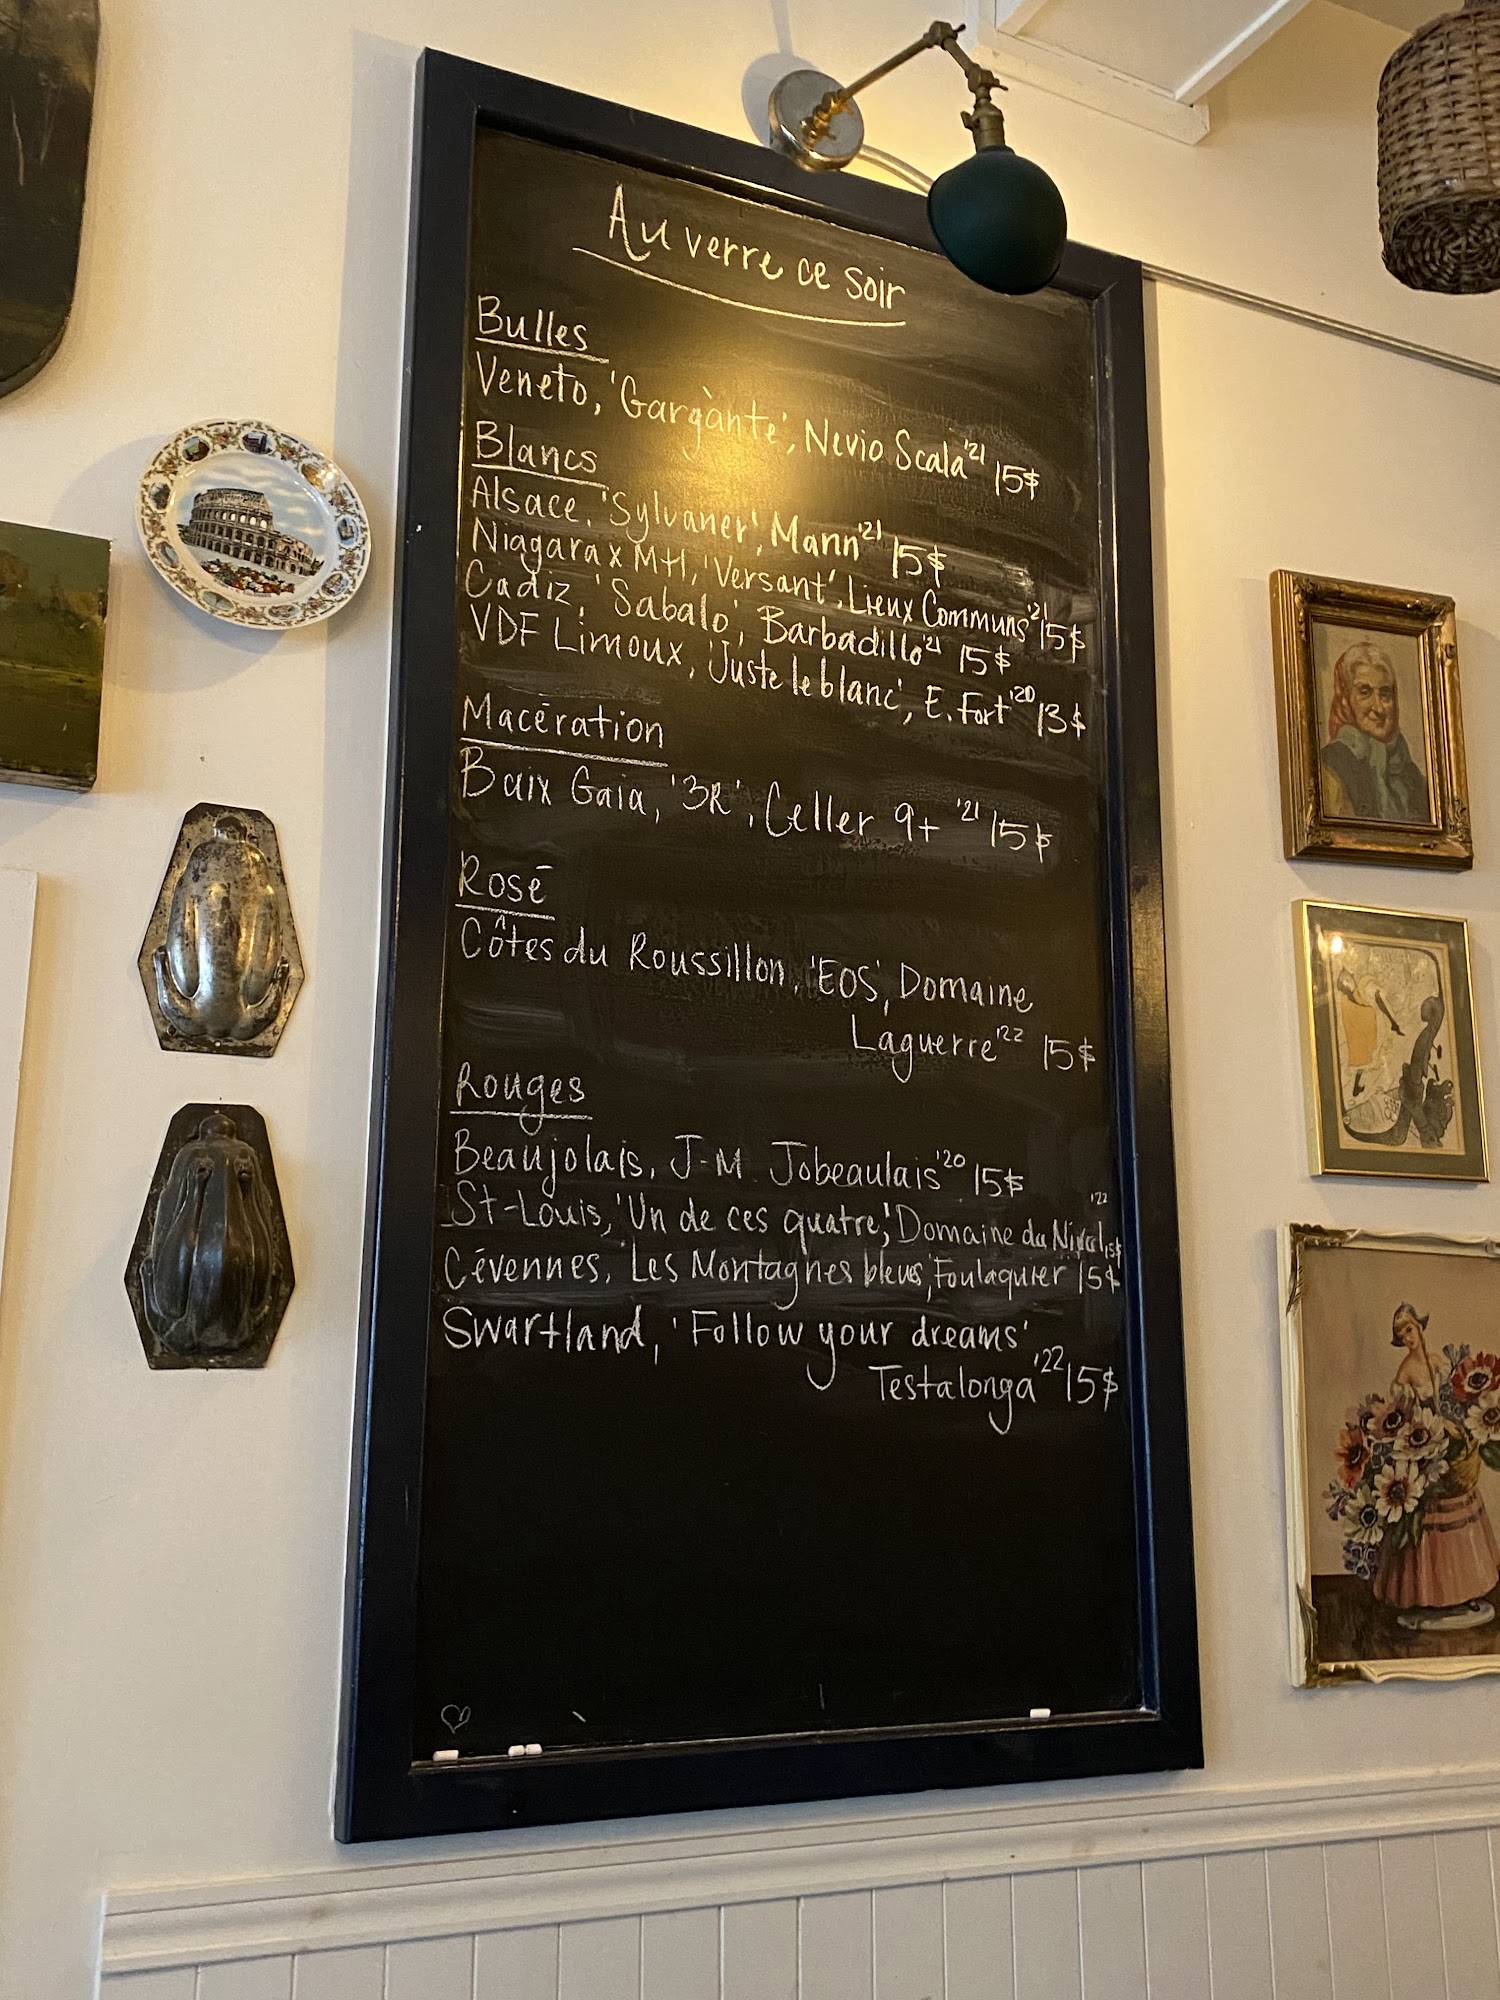 Au verre ce soir
Bulles
Veneto, 'Gargànte', Nevio Scala '21 15$
Blancs
Alsace, 'Sylvaner', Mann '21 15$
Niagara x Mtl, 'Versant', Lieux Communs '21 15$
Cadiz, 'Sabalo', Barbadillo '21 15$
VDF Limoux, 'Juste le blanc', E. Fort '20 13$
Macération
Baix Gaia, '3R', Celler 9+ '21 15$
Rosé
Côtes du Roussillon, 'EOS', Domaine
Laguerre '22 15$
Rouges
Beaujolais, J-M Jobeaulais '20 15$
St-Louis, 'Un de ces quatre', Domaine du Nival '22 15$
Cévennes, Les Montagnes bleues, Foulaquier 15$
Swartland, 'Follow your dreams'
Testalonga '22 15$